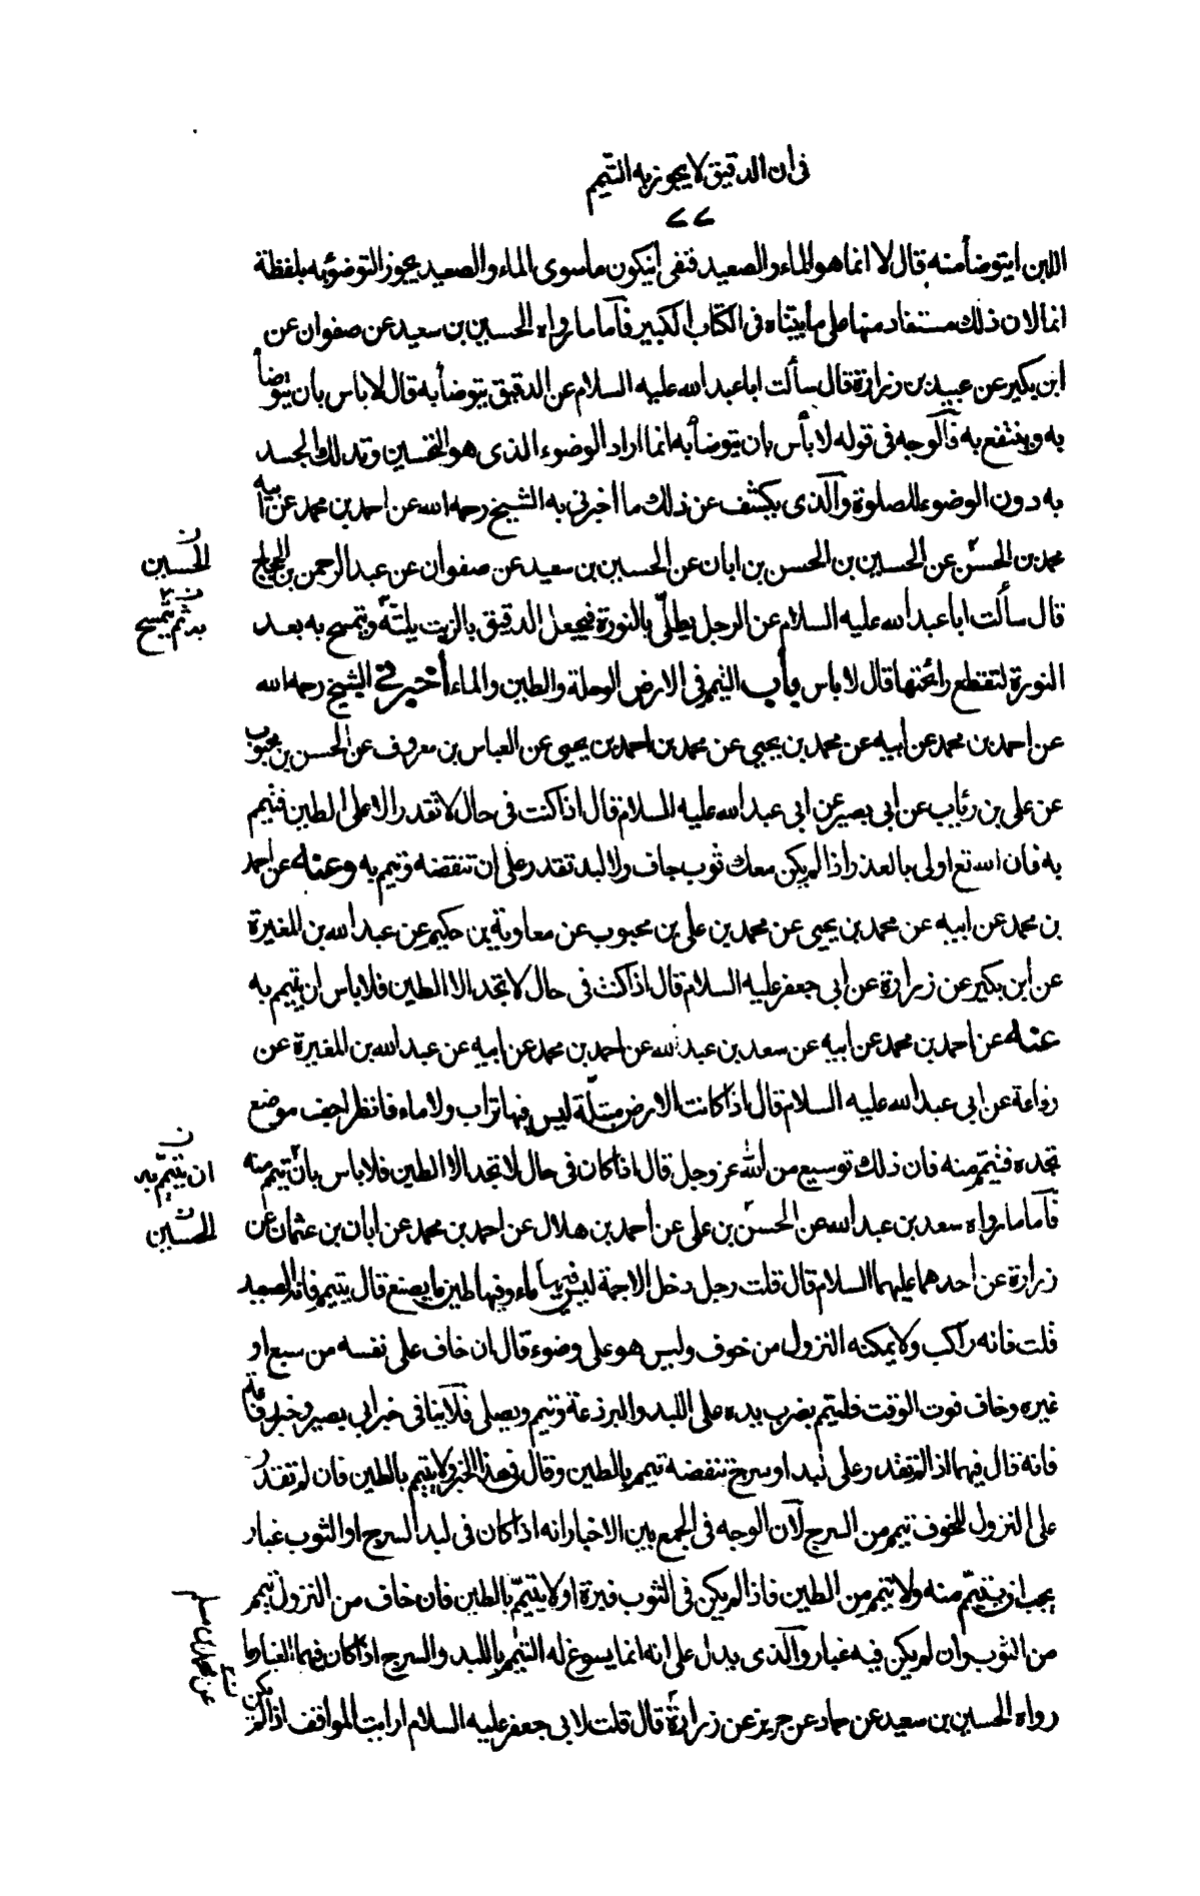 فى ان الدقيق لا يجوز به التيمم
٧٧
اللبن ايتوضأ منه قال لا انما هو الماء والصعيد فنفى ان يكون ما سوى الماء والصعيد يجوز التوضؤ به بلفظة
انما لان ذلك مستفاد منها على ما بيناه فى الكتاب الكبير فأما ما رواه الحسين بن سعيد عن صفوان عن
ابن بكير عن عبيد بن زرارة قال سألت ابا عبد الله عليه السلام عن الدقيق يتوضأ به قال لا باس بان يتوضأ
به وينتفع به فالوجه فى قوله لا بأس بان يتوضأ به انما اراد الوضوء الذى هو التحسين وتدلك الجسد
به دون الوضوء للصلوة والذى يكشف عن ذلك ما اخبرنى به الشيخ رحمه الله عن احمد بن محمد عن ابيه
محمد بن الحسن عن الحسين بن الحسن بن ابان عن الحسين بن سعيد عن صفوان عن عبد الرحمن بن الحجاج
الحسين ن
قال سألت ابا عبد الله عليه السلام عن الرجل يطلى بالنورة فيجعل الدقيق بالزيت يلته ويتمسح به بعد
به ثم يتمسح ن
النورة لتقطع رائحتها قال لا باس باب التيمم فى الارض الوحلة والطين والماء أخبرنى الشيخ رحمه الله
عن احمد بن محمد عن ابيه عن محمد بن يحيى عن محمد بن احمد بن يحيى عن العباس بن معروف عن الحسن بن محبوب
عن على بن رئاب عن ابى بصير عن ابى عبد الله عليه السلام قال اذا كنت فى حال لا تقدر الا على الطين فتيمم
به فان الله تع اولى بالعذر اذا لم يكن معك ثوب جاف ولا لبد تقدر على ان تنفضه وتيمم به وعنه عن احمد
بن محمد عن ابيه عن محمد بن يحيى عن محمد بن على بن محبوب عن معاوية بن حكيم عن عبد الله بن المغيرة
عن ابن بكير عن زرارة عن ابى جعفر عليه السلام قال اذا كنت فى حال لا تجد الا الطين فلا باس ان يتيمم به
عنه عن احمد بن محمد عن ابيه عن سعد بن عبد الله عن احمد بن محمد عن ابيه عن عبد الله بن المغيرة عن
رفاعة عن ابى عبد الله عليه السلام قال اذا كانت الارض مبتلة ليس فيها تراب ولا ماء فانظر اجف موضع
تجده فتيمم منه فان ذلك توسيع من الله عز وجل قال اذا كان فى حال لا تجد الا الطين فلا باس بان تيمم منه
ان يتيمم به ن
فأما ما رواه سعد بن عبد الله عن الحسن بن على عن احمد بن هلال عن احمد بن محمد عن ابان بن عثمان عن
الحسين ن
زرارة عن احدهما عليهما السلام قال قلت رجل دخل الاجمة ليس فيها ماء وفيها طين ما يصنع قال يتيمم فانه الصعيد
قلت فانه راكب ولا يمكنه النزول من خوف وليس هو على وضوء قال ان خاف على نفسه من سبع او
غيره وخاف فوت الوقت فليتيمم يضرب بيده على اللبد والبرذعة وتيمم ويصلى فلا ينافى خبر ابى بصير وخبر رفاعة
فانه قال فيهما اذا لم تقدر على لبد او سرج تنفضه تيمم بالطين وقال فى هذا الخبر ولا يتيمم بالطين فان لم تقدر
على النزول للخوف تيمم من السرج لأن الوجه فى الجمع بين الاخبار انه اذا كان فى لبد السرج او الثوب غبار
يجب ان يتيمم منه ولا تيمم من الطين فاذا لم يكن فى الثوب غبرة اولا يتيمم بالطين فان خاف من النزول تيمم
من الثوب وان لم يكن فيه غبار والذى يدل على انه انما يسوغ له التيمم باللبد والسرج اذا كان فيهما الغبار ما
رواه الحسين بن سعيد عن حماد عن حريز عن زرارة قال قلت لابى جعفر عليه السلام ارايت المواقف اذا لم يكن